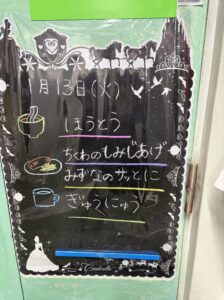 1月13日(火)
ほうとう
ちくわのもみじあげ
みずなのサッとに
ぎゅうにゅう
Cinderella